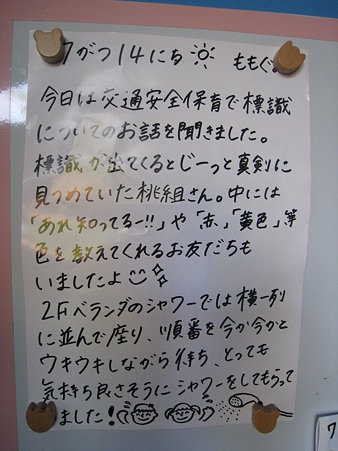 7がつ14にち ももぐみ
今日は交通安全保育で標識
についてのお話を聞きました。
標識が出てくるとじーっと真剣に
見つめていた桃組さん。中には
「あれ知ってるー!!」や「赤」「黄色」等
色を教えてくれるお友だちも
いましたよ
2Fベランダのシャワーでは横一列
に並んで座り、順番を今か今かと
ウキウキしながら待ち、とっても
気持ち良さそうにシャワーをしてもらって
ました!
7